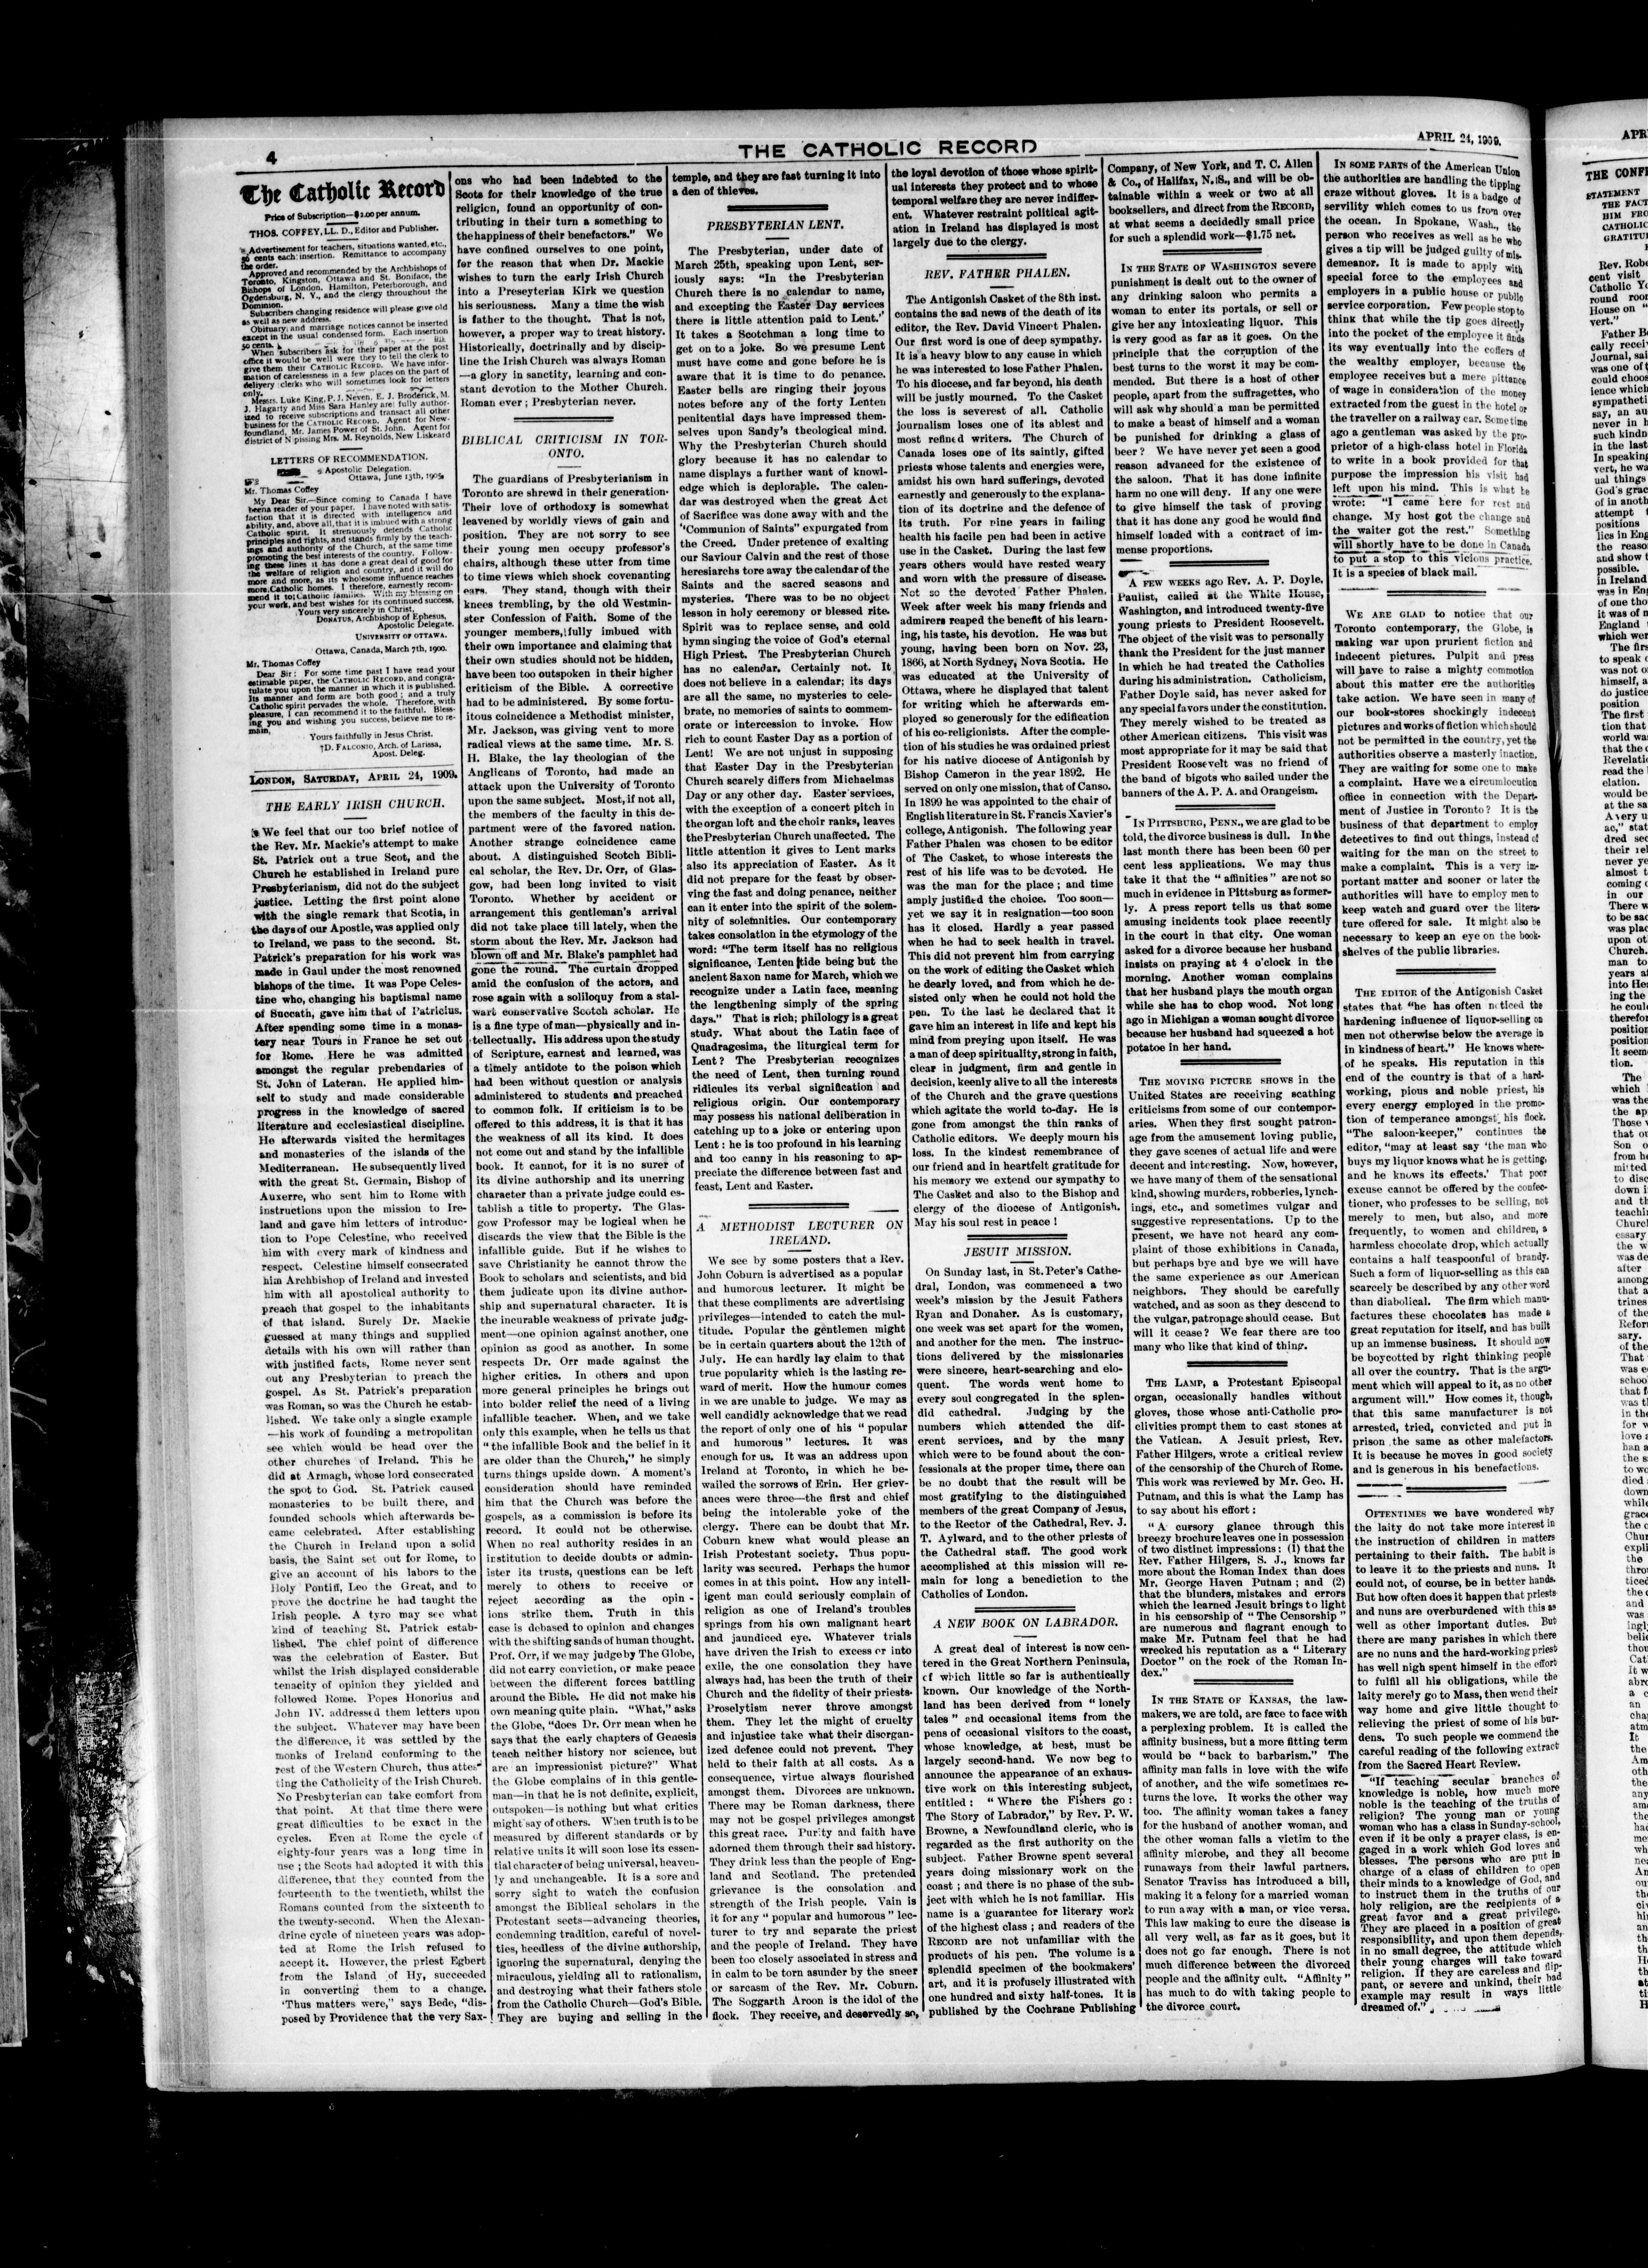 4
THE CATHOLIC RECORD
APRIL 24, 1909.
The Catholic Record
Price of Subscription—$2.00 per annum.
THOS. COFFEY, LL. D., Editor and Publisher.
Advertisement for teachers, situations wanted, etc.,
50 cents each insertion. Remittance to accompany
the order.
Approved and recommended by the Archbishops of
Toronto, Kingston, Ottawa and St. Boniface, the
Bishops of London, Hamilton, Peterborough, and
Ogdensburg, N. Y., and the clergy throughout the
Dominion.
Subscribers changing residence will please give old
as well as new address.
Obituary and marriage notices cannot be inserted
except in the usual condensed form. Each insertion
50 cents.
When subscribers ask for their paper at the post
office it would be well were they to tell the clerk to
give them their CATHOLIC RECORD. We have infor-
mation of carelessness in a few places on the part of
delivery clerks who will sometimes look for letters
only.
Messrs. Luke King, P. J. Neven, E. J. Broderick, M.
J. Hagarty and Miss Sara Hanley are fully author-
ized to receive subscriptions and transact all other
business for the CATHOLIC RECORD. Agent for New-
foundland, Mr. James Power of St. John. Agent for
district of Nipissing Mrs. M. Reynolds, New Liskeard
LETTERS OF RECOMMENDATION.
Apostolic Delegation.
Ottawa, June 13th, 1905.
Mr. Thomas Coffey
My Dear Sir.—Since coming to Canada I have
been a reader of your paper. I have noted with satis-
faction that it is directed with intelligence and
ability, and, above all, that it is imbued with a strong
Catholic spirit. It strenuously defends Catholic
principles and rights, and stands firmly by the teach-
ings and authority of the Church, at the same time
promoting the best interests of the country. Follow-
ing these lines it has done a great deal of good for
the welfare of religion and country, and it will do
more and more, as its wholesome influence reaches
more Catholic homes. I therefore, earnestly recom-
mend it to Catholic families. With my blessing on
your work, and best wishes for its continued success,
Yours very sincerely in Christ,
DONATUS, Archbishop of Ephesus,
Apostolic Delegate.
UNIVERSITY OF OTTAWA.
Ottawa, Canada, March 7th, 1900.
Mr. Thomas Coffey
Dear Sir: For some time past I have read your
estimable paper, the CATHOLIC RECORD, and congra-
tulate you upon the manner in which it is published.
Its manner and form are both good; and a truly
Catholic spirit pervades the whole. Therefore, with
pleasure, I can recommend it to the faithful. Bless-
ing you and wishing you success, believe me to re-
main,
Yours faithfully in Jesus Christ.
†D. FALCONIO, Arch. of Larissa,
Apost. Deleg.
LONDON, SATURDAY, APRIL 24, 1909.
THE EARLY IRISH CHURCH.
We feel that our too brief notice of
the Rev. Mr. Mackie's attempt to make
St. Patrick out a true Scot, and the
Church he established in Ireland pure
Presbyterianism, did not do the subject
justice. Letting the first point alone
with the single remark that Scotia, in
the days of our Apostle, was applied only
to Ireland, we pass to the second. St.
Patrick's preparation for his work was
made in Gaul under the most renowned
bishops of the time. It was Pope Celes-
tine who, changing his baptismal name
of Succath, gave him that of Patricius.
After spending some time in a monas-
tery near Tours in France he set out
for Rome. Here he was admitted
amongst the regular prebendaries of
St. John of Lateran. He applied him-
self to study and made considerable
progress in the knowledge of sacred
literature and ecclesiastical discipline.
He afterwards visited the hermitages
and monasteries of the islands of the
Mediterranean. He subsequently lived
with the great St. Germain, Bishop of
Auxerre, who sent him to Rome with
instructions upon the mission to Ire-
land and gave him letters of introduc-
tion to Pope Celestine, who received
him with every mark of kindness and
respect. Celestine himself consecrated
him Archbishop of Ireland and invested
him with all apostolical authority to
preach that gospel to the inhabitants
of that island. Surely Dr. Mackie
guessed at many things and supplied
details with his own will rather than
with justified facts, Rome never sent
out any Presbyterian to preach the
gospel. As St. Patrick's preparation
was Roman, so was the Church he estab-
lished. We take only a single example
—his work of founding a metropolitan
see which would be head over the
other churches of Ireland. This he
did at Armagh, whose lord consecrated
the spot to God. St. Patrick caused
monasteries to be built there, and
founded schools which afterwards be-
came celebrated. After establishing
the Church in Ireland upon a solid
basis, the Saint set out for Rome, to
give an account of his labors to the
Holy Pontiff, Leo the Great, and to
prove the doctrine he had taught the
Irish people. A tyro may see what
kind of teaching St. Patrick estab-
lished. The chief point of difference
was the celebration of Easter. But
whilst the Irish displayed considerable
tenacity of opinion they yielded and
followed Rome. Popes Honorius and
John IV. addressed them letters upon
the subject. Whatever may have been
the difference, it was settled by the
monks of Ireland conforming to the
rest of the Western Church, thus attes-
ting the Catholicity of the Irish Church.
No Presbyterian can take comfort from
that point. At that time there were
great difficulties to be exact in the
cycles. Even at Rome the cycle of
eighty-four years was a long time in
use; the Scots had adopted it with this
difference, that they counted from the
fourteenth to the twentieth, whilst the
Romans counted from the sixteenth to
the twenty-second. When the Alexan-
drine cycle of nineteen years was adop-
ted at Rome the Irish refused to
accept it. However, the priest Egbert
from the Island of Hy, succeeded
in converting them to a change.
'Thus matters were," says Bede, "dis-
posed by Providence that the very Sax-
ons who had been indebted to the
Scots for their knowledge of the true
religion, found an opportunity of con-
tributing in their turn a something to
the happiness of their benefactors." We
have confined ourselves to one point,
for the reason that when Dr. Mackie
wishes to turn the early Irish Church
into a Presbyterian Kirk we question
his seriousness. Many a time the wish
is father to the thought. That is not,
however, a proper way to treat history.
Historically, doctrinally and by discip-
line the Irish Church was always Roman
—a glory in sanctity, learning and con-
stant devotion to the Mother Church.
Roman ever; Presbyterian never.
BIBLICAL CRITICISM IN TOR-
ONTO.
The guardians of Presbyterianism in
Toronto are shrewd in their generation.
Their love of orthodoxy is somewhat
leavened by worldly views of gain and
position. They are not sorry to see
their young men occupy professor's
chairs, although these utter from time
to time views which shock covenanting
ears. They stand, though with their
knees trembling, by the old Westmin-
ster Confession of Faith. Some of the
younger members, fully imbued with
their own importance and claiming that
their own studies should not be hidden,
have been too outspoken in their higher
criticism of the Bible. A corrective
had to be administered. By some fortu-
itous coincidence a Methodist minister,
Mr. Jackson, was giving vent to more
radical views at the same time. Mr. S.
H. Blake, the lay theologian of the
Anglicans of Toronto, had made an
attack upon the University of Toronto
upon the same subject. Most, if not all,
the members of the faculty in this de-
partment were of the favored nation.
Another strange coincidence came
about. A distinguished Scotch Bibli-
cal scholar, the Rev. Dr. Orr, of Glas-
gow, had been long invited to visit
Toronto. Whether by accident or
arrangement this gentleman's arrival
did not take place till lately, when the
storm about the Rev. Mr. Jackson had
blown off and Mr. Blake's pamphlet had
gone the round. The curtain dropped
amid the confusion of the actors, and
rose again with a soliloquy from a stal-
wart conservative Scotch scholar. He
is a fine type of man—physically and in-
tellectually. His address upon the study
of Scripture, earnest and learned, was
a timely antidote to the poison which
had been without question or analysis
administered to students and preached
to common folk. If criticism is to be
offered to this address, it is that it has
the weakness of all its kind. It does
not come out and stand by the infallible
book. It cannot, for it is no surer of
its divine authorship and its unerring
character than a private judge could es-
tablish a title to property. The Glas-
gow Professor may be logical when he
discards the view that the Bible is the
infallible guide. But if he wishes to
save Christianity he cannot throw the
Book to scholars and scientists, and bid
them judicate upon its divine author-
ship and supernatural character. It is
the incurable weakness of private judg-
ment—one opinion against another, one
opinion as good as another. In some
respects Dr. Orr made against the
higher critics. In others and upon
more general principles he brings out
into bolder relief the need of a living
infallible teacher. When, and we take
only this example, when he tells us that
"the infallible Book and the belief in it
are older than the Church," he simply
turns things upside down. A moment's
consideration should have reminded
him that the Church was before the
gospels, as a commission is before its
record. It could not be otherwise.
When no real authority resides in an
institution to decide doubts or admin-
ister its trusts, questions can be left
merely to others to receive or
reject according as the opin-
ions strike them. Truth in this
case is debased to opinion and changes
with the shifting sands of human thought.
Prof. Orr, if we may judge by The Globe,
did not carry conviction, or make peace
between the different forces battling
around the Bible. He did not make his
own meaning quite plain. "What," asks
the Globe, "does Dr. Orr mean when he
says that the early chapters of Genesis
teach neither history nor science, but
are an impressionist picture?" What
the Globe complains of in this gentle-
man—in that he is not definite, explicit,
outspoken—is nothing but what critics
might say of others. When truth is to be
measured by different standards or by
relative units it will soon lose its essen-
tial character of being universal, heaven-
ly and unchangeable. It is a sore and
sorry sight to watch the confusion
amongst the Biblical scholars in the
Protestant sects—advancing theories,
condemning tradition, careful of novel-
ties, heedless of the divine authorship,
ignoring the supernatural, denying the
miraculous, yielding all to rationalism,
and destroying what their fathers stole
from the Catholic Church—God's Bible.
They are buying and selling in the
temple, and they are fast turning it into
a den of thieves.
PRESBYTERIAN LENT.
The Presbyterian, under date of
March 25th, speaking upon Lent, ser-
iously says: "In the Presbyterian
Church there is no calendar to name,
and excepting the Easter Day services
there is little attention paid to Lent."
It takes a Scotchman a long time to
get on to a joke. So we presume Lent
must have come and gone before he is
aware that it is time to do penance.
Easter bells are ringing their joyous
notes before any of the forty Lenten
penitential days have impressed them-
selves upon Sandy's theological mind.
Why the Presbyterian Church should
glory because it has no calendar to
name displays a further want of knowl-
edge which is deplorable. The calen-
dar was destroyed when the great Act
of Sacrifice was done away with and the
"Communion of Saints" expurgated from
the Creed. Under pretence of exalting
our Saviour Calvin and the rest of those
heresiarchs tore away the calendar of the
Saints and the sacred seasons and
mysteries. There was to be no object
lesson in holy ceremony or blessed rite.
Spirit was to replace sense, and cold
hymn singing the voice of God's eternal
High Priest. The Presbyterian Church
has no calendar. Certainly not. It
does not believe in a calendar; its days
are all the same, no mysteries to cele-
brate, no memories of saints to commem-
orate or intercession to invoke. How
rich to count Easter Day as a portion of
Lent! We are not unjust in supposing
that Easter Day in the Presbyterian
Church scarely differs from Michaelmas
Day or any other day. Easter services,
with the exception of a concert pitch in
the organ loft and the choir ranks, leaves
the Presbyterian Church unaffected. The
little attention it gives to Lent marks
also its appreciation of Easter. As it
did not prepare for the feast by obser-
ving the fast and doing penance, neither
can it enter into the spirit of the solem-
ity of solemnities. Our contemporary
takes consolation in the etymology of the
word: "The term itself has no religious
significance, Lenten tide being but the
ancient Saxon name for March, which we
recognize under a Latin face, meaning
the lengthening simply of the spring
days." That is rich; philology is a great
study. What about the Latin face of
Quadragesima, the liturgical term for
Lent? The Presbyterian recognizes
the need of Lent, then turning round
ridicules its verbal signification and
religious origin. Our contemporary
may possess his national deliberation in
catching up to a joke or entering upon
Lent: he is too profound in his learning
and too canny in his reasoning to ap-
preciate the difference between fast and
feast, Lent and Easter.
A METHODIST LECTURER ON
IRELAND.
We see by some posters that a Rev.
John Coburn is advertised as a popular
and humorous lecturer. It might be
that these compliments are advertising
privileges—intended to catch the mul-
titude. Popular the gentlemen might
be in certain quarters about the 12th of
July. He can hardly lay claim to that
true popularity which is the lasting re-
ward of merit. How the humour comes
in we are unable to judge. We may as
well candidly acknowledge that we read
the report of only one of his "popular
and humorous" lectures. It was
enough for us. It was an address upon
Ireland at Toronto, in which he be-
wailed the sorrows of Erin. Her griev-
ances were three—the first and chief
being the intolerable yoke of the
clergy. There can be doubt that Mr.
Coburn knew what would please an
Irish Protestant society. Thus popu-
larity was secured. Perhaps the humor
comes in at this point. How any intell-
igent man could seriously complain of
religion as one of Ireland's troubles
springs from his own malignant heart
and jaundiced eye. Whatever trials
have driven the Irish to excess or into
exile, the one consolation they have
always had, has been the truth of their
Church and the fidelity of their priests.
Proselytism never throve amongst
them. They let the might of cruelty
and injustice take what their disorgan-
ized defence could not prevent. They
held to their faith at all costs. As a
consequence, virtue always flourished
amongst them. Divorces are unknown.
There may be Roman darkness, there
may not be gospel privileges amongst
this great race. Purity and faith have
adorned them through their sad history.
They drink less than the people of Eng-
land and Scotland. The pretended
grievance is the consolation and
strength of the Irish people. Vain is
it for any "popular and humorous" lec-
turer to try and separate the priest
and the people of Ireland. They have
been too closely associated in stress and
in calm to be torn asunder by the sneer
or sarcasm of the Rev. Mr. Coburn.
The Soggarth Aroon is the idol of the
flock. They receive, and deservedly so,
the loyal devotion of those whose spirit-
ual interests they protect and to whose
temporal welfare they are never indiffer-
ent. Whatever restraint political agit-
ation in Ireland has displayed is most
largely due to the clergy.
REV. FATHER PHALEN.
The Antigonish Casket of the 8th inst.
contains the sad news of the death of its
editor, the Rev. David Vincent Phalen.
Our first word is one of deep sympathy.
It is a heavy blow to any cause in which
he was interested to lose Father Phalen.
To his diocese, and far beyond, his death
will be justly mourned. To the Casket
the loss is severest of all. Catholic
journalism loses one of its ablest and
most refined writers. The Church of
Canada loses one of its saintly, gifted
priests whose talents and energies were,
amidst his own hard sufferings, devoted
earnestly and generously to the explana-
tion of its doctrine and the defence of
its truth. For nine years in failing
health his facile pen had been in active
use in the Casket. During the last few
years others would have rested weary
and worn with the pressure of disease.
Not so the devoted Father Phalen.
Week after week his many friends and
admirers reaped the benefit of his learn-
ing, his taste, his devotion. He was but
young, having been born on Nov. 23,
1866, at North Sydney, Nova Scotia. He
was educated at the University of
Ottawa, where he displayed that talent
for writing which he afterwards em-
ployed so generously for the edification
of his co-religionists. After the comple-
tion of his studies he was ordained priest
for his native diocese of Antigonish by
Bishop Cameron in the year 1892. He
served on only one mission, that of Canso.
In 1899 he was appointed to the chair of
English literature in St. Francis Xavier's
college, Antigonish. The following year
Father Phalen was chosen to be editor
of The Casket, to whose interests the
rest of his life was to be devoted. He
was the man for the place; and time
amply justified the choice. Too soon—
yet we say it in resignation—too soon
has it closed. Hardly a year passed
when he had to seek health in travel.
This did not prevent him from carrying
on the work of editing the Casket which
he dearly loved, and from which he de-
sisted only when he could not hold the
pen. To the last he declared that it
gave him an interest in life and kept his
mind from preying upon itself. He was
a man of deep spirituality, strong in faith,
clear in judgment, firm and gentle in
decision, keenly alive to all the interests
of the Church and the grave questions
which agitate the world to-day. He is
gone from amongst the thin ranks of
Catholic editors. We deeply mourn his
loss. In the kindest remembrance of
our friend and in heartfelt gratitude for
his memory we extend our sympathy to
The Casket and also to the Bishop and
clergy of the diocese of Antigonish.
May his soul rest in peace!
JESUIT MISSION.
On Sunday last, in St. Peter's Cathe-
dral, London, was commenced a two
week's mission by the Jesuit Fathers
Ryan and Donaher. As is customary,
one week was set apart for the women,
and another for the men. The instruc-
tions delivered by the missionaries
were sincere, heart-searching and elo-
quent. The words went home to
every soul congregated in the splen-
did cathedral. Judging by the
numbers which attended the dif-
erent services, and by the many
which were to be found about the con-
fessionals at the proper time, there can
be no doubt that the result will be
most gratifying to the distinguished
members of the great Company of Jesus,
to the Rector of the Cathedral, Rev. J.
T. Aylward, and to the other priests of
the Cathedral staff. The good work
accomplished at this mission will re-
main for long a benediction to the
Catholics of London.
A NEW BOOK ON LABRADOR.
A great deal of interest is now cen-
tered in the Great Northern Peninsula,
of which little so far is authentically
known. Our knowledge of the North-
land has been derived from "lonely
tales" and occasional items from the
pens of occasional visitors to the coast,
whose knowledge, at best, must be
largely second-hand. We now beg to
announce the appearance of an exhaus-
tive work on this interesting subject,
entitled: "Where the Fishers go:
The Story of Labrador," by Rev. P. W.
Browne, a Newfoundland cleric, who is
regarded as the first authority on the
subject. Father Browne spent several
years doing missionary work on the
coast; and there is no phase of the sub-
ject with which he is not familiar. His
name is a guarantee for literary work
of the highest class; and readers of the
RECORD are not unfamiliar with the
products of his pen. The volume is a
splendid specimen of the bookmakers'
art, and it is profusely illustrated with
one hundred and sixty half-tones. It is
published by the Cochrane Publishing
Company, of New York, and T. C. Allen
& Co., of Halifax, N. S., and will be ob-
tainable within a week or two at all
booksellers, and direct from the RECORD,
at what seems a decidedly small price
for such a splendid work—$1.75 net.
IN THE STATE OF WASHINGTON severe
punishment is dealt out to the owner of
any drinking saloon who permits a
woman to enter its portals, or sell or
give her any intoxicating liquor. This
is very good as far as it goes. On the
principle that the corruption of the
best turns to the worst it may be com-
mended. But there is a host of other
people, apart from the suffragettes, who
will ask why should a man be permitted
to make a beast of himself and a woman
be punished for drinking a glass of
beer? We have never yet seen a good
reason advanced for the existence of
the saloon. That it has done infinite
harm no one will deny. If any one were
to give himself the task of proving
that it has done any good he would find
himself loaded with a contract of im-
mense proportions.
A FEW WEEKS ago Rev. A. P. Doyle,
Paulist, called at the White House,
Washington, and introduced twenty-five
young priests to President Roosevelt.
The object of the visit was to personally
thank the President for the just manner
in which he had treated the Catholics
during his administration. Catholicism,
Father Doyle said, has never asked for
any special favors under the constitution.
They merely wished to be treated as
other American citizens. This visit was
most appropriate for it may be said that
President Roosevelt was no friend of
the band of bigots who sailed under the
banners of the A. P. A. and Orangeism.
IN PITTSBURG, PENN., we are glad to be
told, the divorce business is dull. In the
last month there has been been 60 per
cent less applications. We may thus
take it that the "affinities" are not so
much in evidence in Pittsburg as former-
ly. A press report tells us that some
amusing incidents took place recently
in the court in that city. One woman
asked for a divorce because her husband
insists on praying at 4 o'clock in the
morning. Another woman complains
that her husband plays the mouth organ
while she has to chop wood. Not long
ago in Michigan a woman sought divorce
because her husband had squeezed a hot
potatoe in her hand.
THE MOVING PICTURE SHOWS in the
United States are receiving scathing
criticisms from some of our contempor-
aries. When they first sought patron-
age from the amusement loving public,
they gave scenes of actual life and were
decent and interesting. Now, however,
we have many of them of the sensational
kind, showing murders, robberies, lynch-
ings, etc., and sometimes vulgar and
suggestive representations. Up to the
present, we have not heard any com-
plaint of those exhibitions in Canada,
but perhaps bye and bye we will have
the same experience as our American
neighbors. They should be carefully
watched, and as soon as they descend to
the vulgar, patronage should cease. But
will it cease? We fear there are too
many who like that kind of thing.
THE LAMP, a Protestant Episcopal
organ, occasionally handles without
gloves, those whose anti-Catholic pro-
clivities prompt them to cast stones at
the Vatican. A Jesuit priest, Rev.
Father Hilgers, wrote a critical review
of the censorship of the Church of Rome.
This work was reviewed by Mr. Geo. H.
Putnam, and this is what the Lamp has
to say about his effort:
"A cursory glance through this
breezy brochure leaves one in possession
of two distinct impressions: (1) that the
Rev. Father Hilgers, S. J., knows far
more about the Roman Index than does
Mr. George Haven Putnam; and (2)
that the blunders, mistakes and errors
which the learned Jesuit brings to light
in his censorship of "The Censorship"
are numerous and flagrant enough to
make Mr. Putnam feel that he had
wrecked his reputation as a "Literary
Doctor" on the rock of the Roman In-
dex."
IN THE STATE OF KANSAS, the law-
makers, we are told, are face to face with
a perplexing problem. It is called the
affinity business, but a more fitting term
would be "back to barbarism." The
affinity man falls in love with the wife
of another, and the wife sometimes re-
turns the love. It works the other way
too. The affinity woman takes a fancy
for the husband of another woman, and
the other woman falls a victim to the
affinity microbe, and they all become
runaways from their lawful partners.
Senator Traviss has introduced a bill,
making it a felony for a married woman
to run away with a man, or vice versa.
This law making to cure the disease is
all very well, as far as it goes, but it
does not go far enough. There is not
much difference between the divorced
people and the affinity cult. "Affinity"
has much to do with taking people to
the divorce court.
IN SOME PARTS of the American Union
the authorities are handling the tipping
craze without gloves. It is a badge of
servility which comes to us from over
the ocean. In Spokane, Wash., the
person who receives as well as he who
gives a tip will be judged guilty of mis-
demeanor. It is made to apply with
special force to the employees and
employers in a public house or public
service corporation. Few people stop to
think that while the tip goes directly
into the pocket of the employee it finds
its way eventually into the coffers of
the wealthy employer, because the
employee receives but a mere pittance
of wage in consideration of the money
extracted from the guest in the hotel or
the traveller on a railway car. Sometime
ago a gentleman was asked by the pro-
prietor of a high-class hotel in Florida
to write in a book provided for that
purpose the impression his visit had
left upon his mind. This is what he
wrote: "I came here for rest and
change. My host got the change and
the waiter got the rest." Something
will shortly have to be done in Canada
to put a stop to this vicious practice.
It is a species of black mail.
WE ARE GLAD to notice that our
Toronto contemporary, the Globe, is
making war upon prurient fiction and
indecent pictures. Pulpit and press
will have to raise a mighty commotion
about this matter ere the authorities
take action. We have seen in many of
our book-stores shockingly indecent
pictures and works of fiction which should
not be permitted in the country, yet the
authorities observe a masterly inaction.
They are waiting for some one to make
a complaint. Have we a circumlocution
office in connection with the Depart-
ment of Justice in Toronto? It is the
business of that department to employ
detectives to find out things, instead of
waiting for the man on the street to
make a complaint. This is a very im-
portant matter and sooner or later the
authorities will have to employ men to
keep watch and guard over the litera-
ture offered for sale. It might also be
necessary to keep an eye on the book-
shelves of the public libraries.
THE EDITOR of the Antigonish Casket
states that "he has often noticed the
hardening influence of liquor-selling on
men not otherwise below the average in
in kindness of heart." He knows where-
of he speaks. His reputation in this
end of the country is that of a hard-
working, pious and noble priest, his
every energy employed in the promo-
tion of temperance amongst his flock.
"The saloon-keeper," continues the
editor, "may at least say 'the man who
buys my liquor knows what he is getting,
and he knows its effects.' That poor
excuse cannot be offered by the confec-
tioner, who professes to be selling, not
merely to men, but also, and more
frequently, to women and children, a
harmless chocolate drop, which actually
contains a half teaspoonful of brandy.
Such a form of liquor-selling as this can
scarcely be described by any other word
than diabolical. The firm which manu-
factures these chocolates has made a
great reputation for itself, and has built
up an immense business. It should now
be boycotted by right thinking people
all over the country. That is the argu-
ment which will appeal to it, as no other
argument will." How comes it, though,
that this same manufacturer is not
arrested, tried, convicted and put in
prison the same as other malefactors.
It is because he moves in good society
and is generous in his benefactions.
OFTENTIMES we have wondered why
the laity do not take more interest in
the instruction of children in matters
pertaining to their faith. The habit is
to leave it to the priests and nuns. It
could not, of course, be in better hands.
But how often does it happen that priests
and nuns are overburdened with this as
well as other important duties. But
there are many parishes in which there
are no nuns and the hard-working priest
has well nigh spent himself in the effort
to fulfil all his obligations, while the
laity merely go to Mass, then wend their
way home and give little thought to
relieving the priest of some of his bur-
dens. To such people we commend the
careful reading of the following extract
from the Sacred Heart Review.
"If teaching secular branches of
knowledge is noble, how much more
noble is the teaching of the truths of
religion? The young man or young
woman who has a class in Sunday-school,
even if it be only a prayer class, is en-
gaged in a work which God loves and
blesses. The persons who are put in
charge of a class of children to open
their minds to a knowledge of God, and
to instruct them in the truths of our
holy religion, are the recipients of a
great favor and a great privilege.
They are placed in a position of great
responsibility, and upon them depends,
in no small degree, the attitude which
their young charges will take toward
religion. If they are careless and flip-
pant, or severe and unkind, their bad
example may result in ways little
dreamed of."